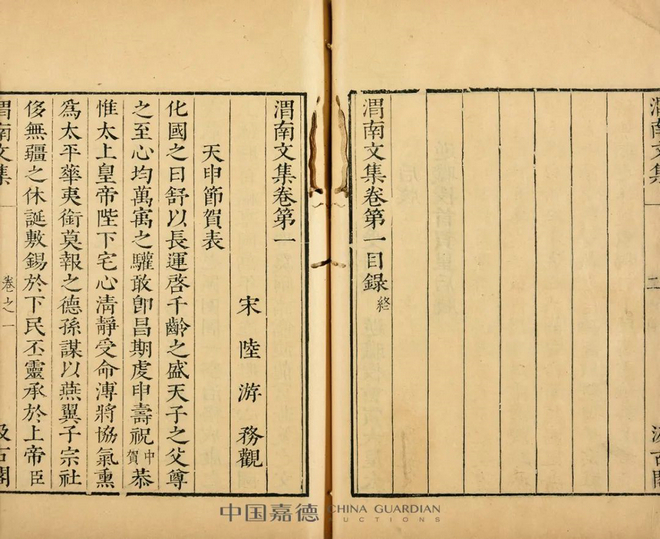 渭南文集
二
汲古閣
渭南文集卷第一目錄終
渭南文集卷第一
宋陸游務觀
天申節賀表
化國之日舒以長運啓千齡之盛天子之父尊
之至心均萬㝢之驩敢卽昌期虔申壽祝中賀恭
惟太上皇帝陛下宅心清靜受命溥將協氣熏
爲太平華夷銜莫報之德孫謀以燕翼子宗社
侈無疆之休誕敷錫於下民丕靈承於上帝臣
渭南文集
卷之一
汲古閣
中国嘉德
CHINA GUARDIAN
AUCTIONS